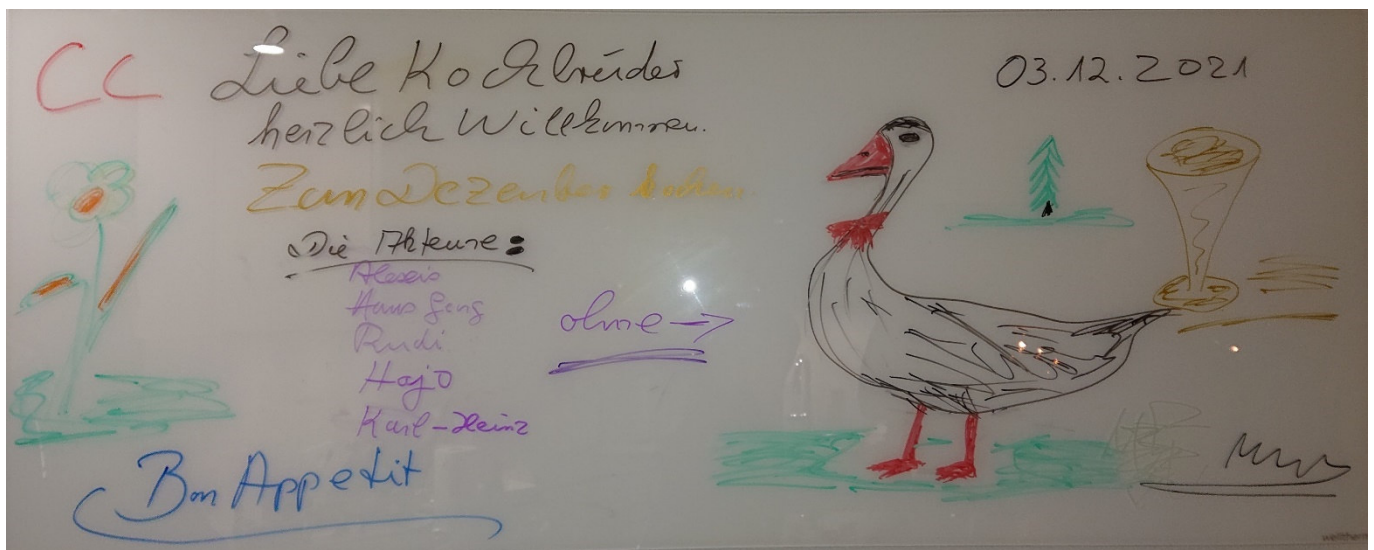 CC
Liebe Kochbrüder
03.12.2021
herzlich Willkommen.
Zum Dezember kochen
Die Akteure:
Alexis
Hans Georg
Rudi
Hajo
Karl-Heinz
ohne →
Bon Appetit